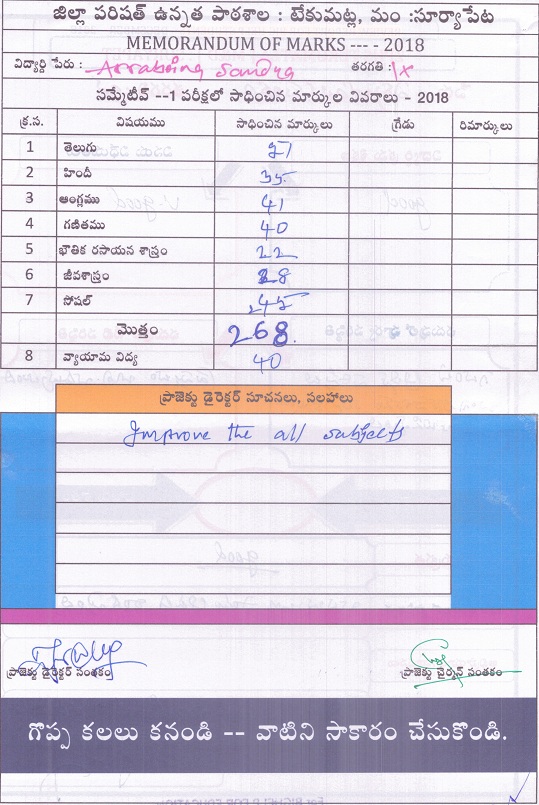 జిల్లా పరిషత్ ఉన్నత పాఠశాల : టేకుమట్ల, మం :సూర్యాపేట
MEMORANDUM OF MARKS --- - 2018
విద్యార్థి పేరు : తరగతి : IX
సమ్మేటీవ్ --1 పరీక్షలో సాధించిన మార్కుల వివరాలు - 2018
క్ర.స. విషయము సాధించిన మార్కులు గ్రేడు రిమార్కులు
1 తెలుగు
2 హిందీ 35
3 ఆంగ్లము 41
4 గణితము 40
5 భౌతిక రసాయన శాస్త్రం 22
6 జీవశాస్త్రం 38
7 సోషల్ 45
మొత్తం 268
8 వ్యాయామ విద్య 40
ప్రాజెక్టు డైరెక్టర్ సూచనలు, సలహాలు
Improve the all subjects
ప్రాజెక్టు డైరెక్టర్ సంతకం ప్రాజెక్టు చైర్మన్ సంతకం
గొప్ప కలలు కనండి -- వాటిని సాకారం చేసుకొండి.